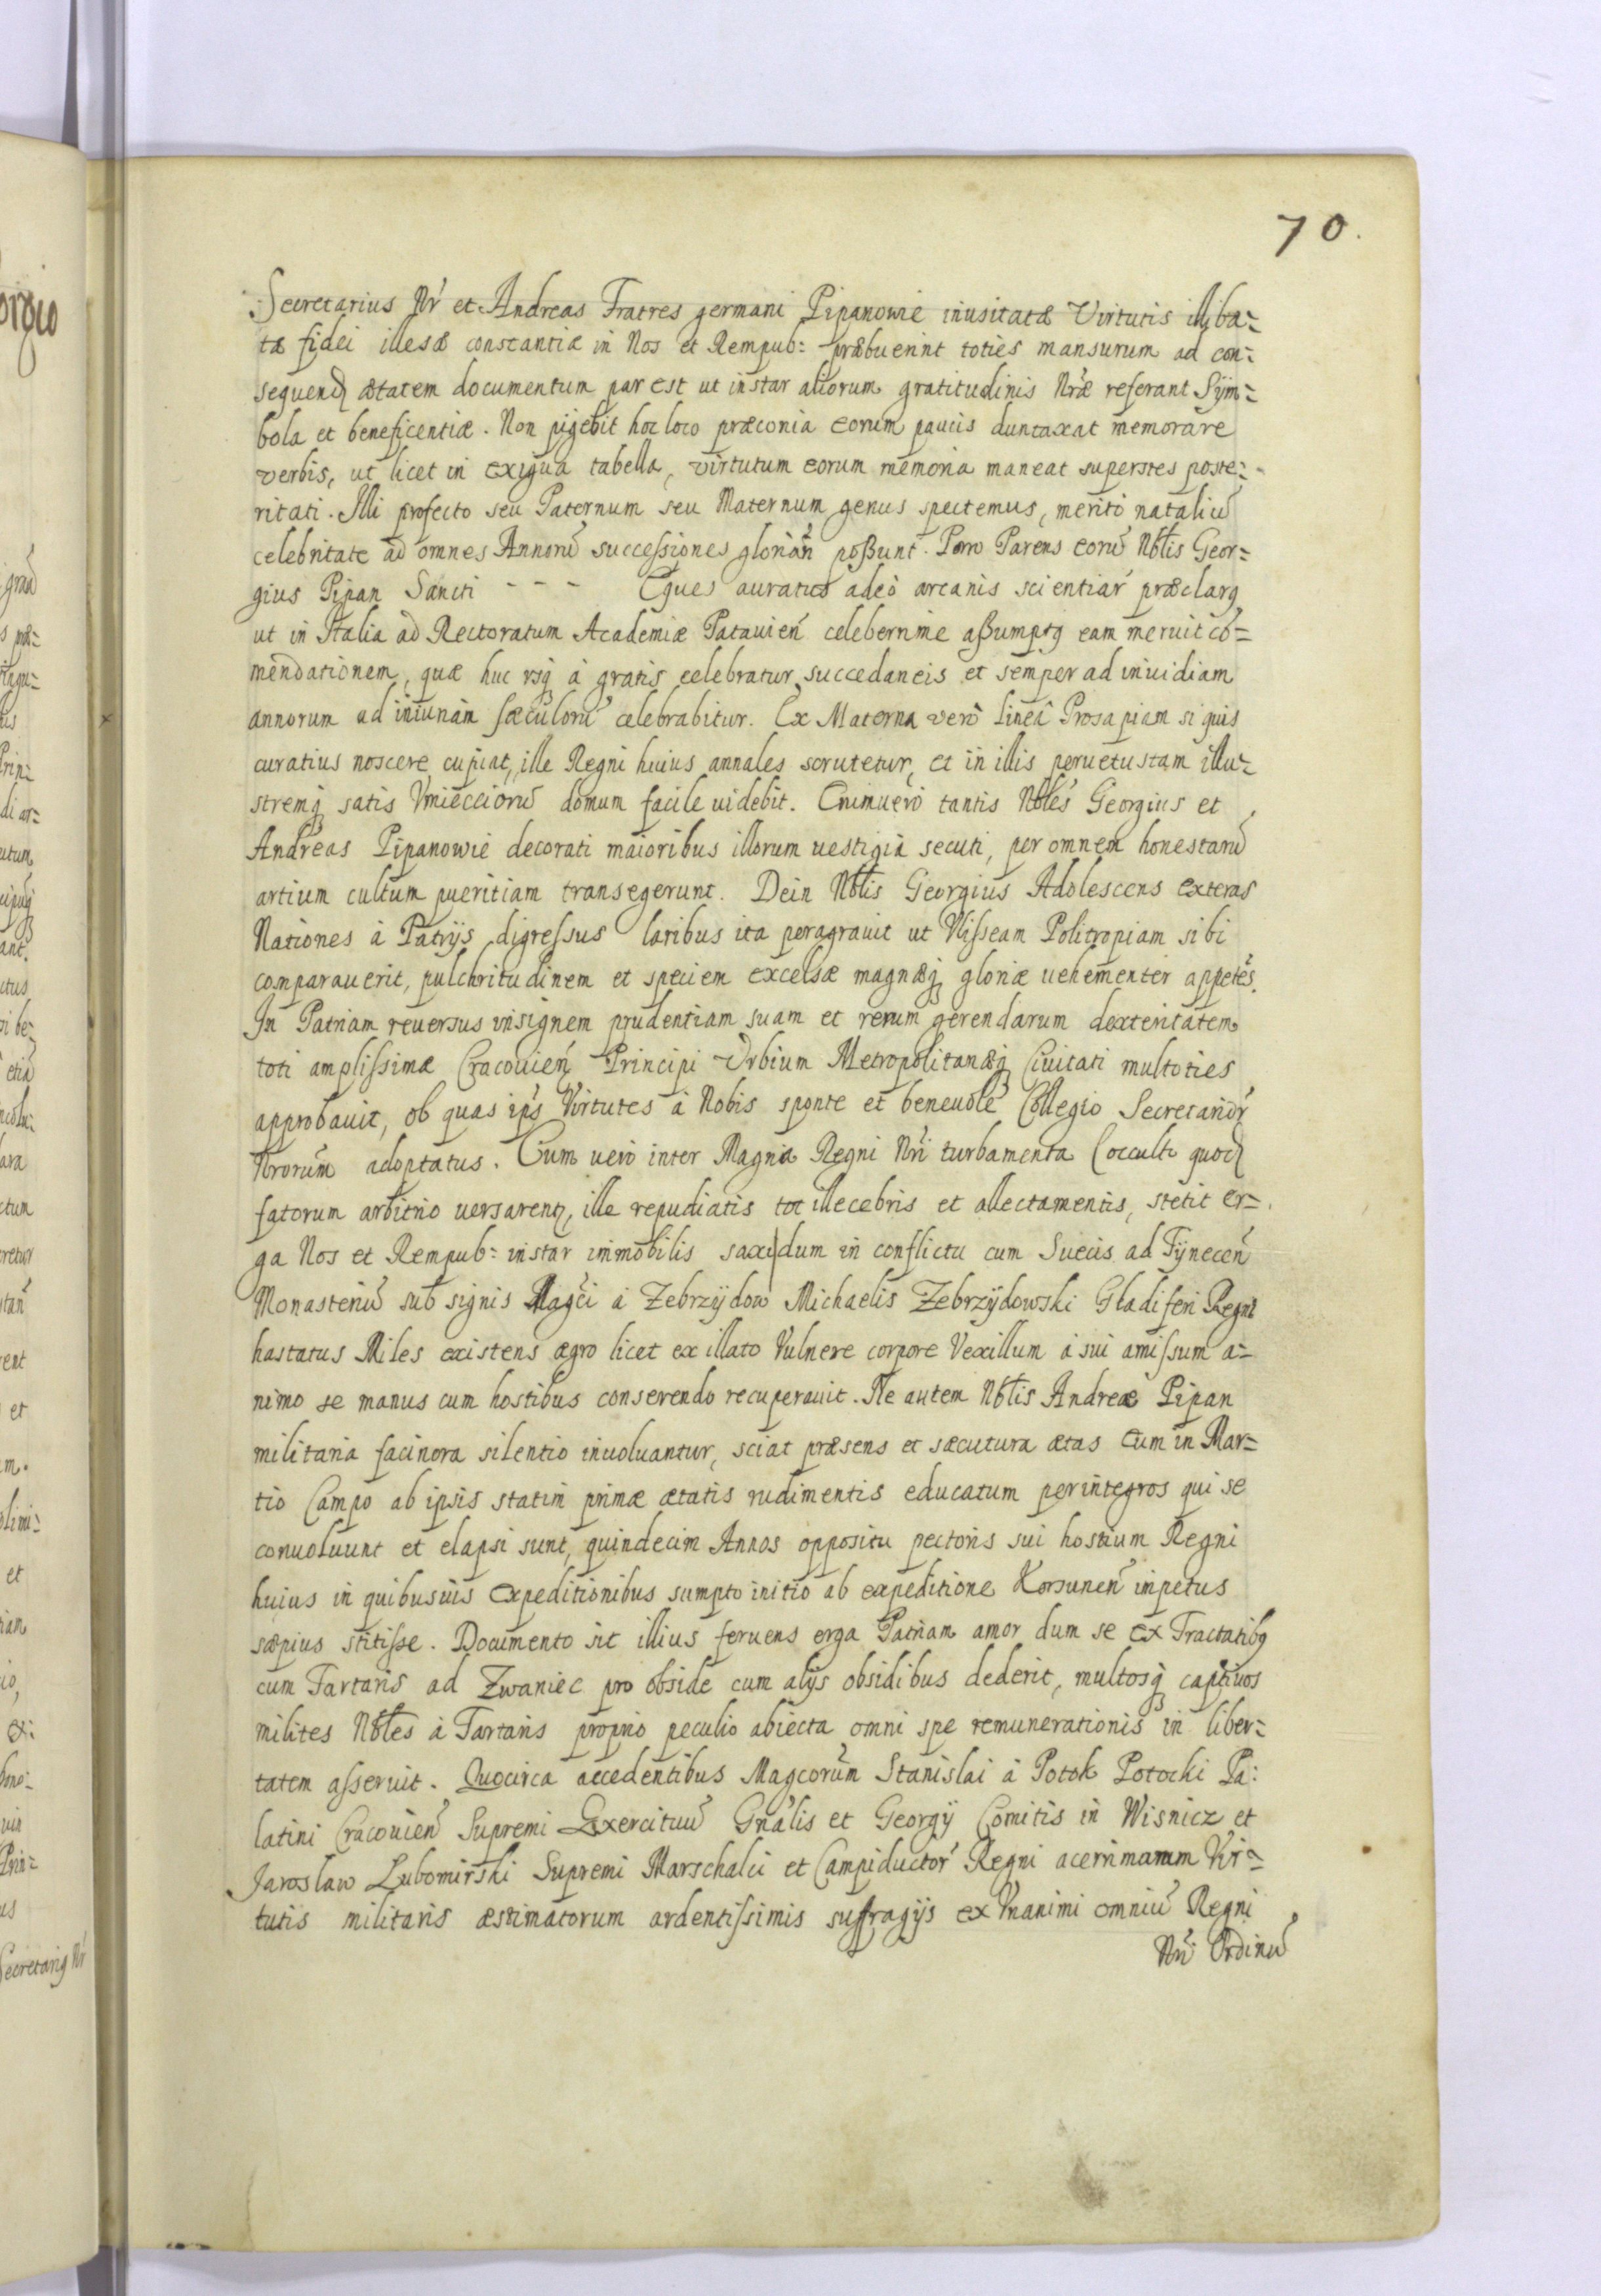 70.
Secretarius Nr et Andreas Fratres germani Pipanowie inusitatæ Virtutis illiba=
tæ fidei illesæ constantiæ in Nos et Rempub: præbuerint toties mansurum ad con=
sequend ætatem documentum par est ut instar aliorum gratitudinis Nræ referant Sÿm=
bola et beneficentiæ. Non pigebit hoc loco præconia eorum paucis duntaxat memorare
verbis, ut licet in exigua tabella, virtutum eorum memoria maneat superstes poste=
ritati. Illi profecto seu Paternum seu Maternum genus spectemus, meritò nataliũ
celebritate ad omnes Annorũ successiones gloriãri poßunt. Porro Parens eorũ Nbtlis Geor=
gius Pipan Sancti - - - Eques auratus adeò arcanis scientiar præclarq
ut in Italia ad Rectoratum Academiæ Patauien celeberrime aßumptq eam meruit cõ=
mendationem, quæ huc vsq à gratis celebratur succedaneis et semper ad inuidiam
annorum ad iniuriam sæculorũ celebrabitur. Ex Materna verò lineâ Prosapiam si quis
curatius noscere cupiat, ille Regni huius annales scrutetur, et in illis peruetustam illu=
stremq satis Vmięcciorũ domum facile uidebit. Enimuerò tantis Nbtles Georgius et
Andreas Pipanowie decorati maioribus illorum uestigia secuti, per omnem honestarũ
artium cultum pueritiam transegerunt. Dein Nbtlis Georgius Adolescens exteras
Nationes à Patrijs digressus laribus ita peragrauit ut Vlisseam Politropiam sibi
comparauerit, pulchritudinem et speciem excelsæ magnæq gloriæ uehementer appetẽs.
In Patriam reuersus insignem prudentiam suam et rerum gerendarum dexteritatem
toti amplissimæ Cracouien Principi Vrbium Metropolitanæq Ciuitati multoties
approbauit, ob quas ips Virtutes à Nobis sponte et beneuole Collegio Secretarior
Nrorum adoptatus. Cum uerò inter Magna Regni Nri turbamenta (occulto quod
fatorum arbitrio uersarent, ille repudiatis tot illecebris et allectamentis, stetit er=
ga Nos et Rempub: instar immobilis saxi dum in conflictu cum Suecis ad Tÿnecen
Monasteriũ sub signis Magci à Zebrzÿdow Michaelis Zebrzÿdowski Gladiferi Regni
hastatus Miles existens ægro licet ex illato Vulnere corpore Vexillum à sui amissum a=
nimo se manus cum hostibus conserendo recuperauit. Ne autem Nbtlis Andreæ Pipan
militaria facinora silentio inuoluantur, sciat præsens et sæcutura ætas eum in Mar=
tio Campo ab ipsis statim primæ ætatis rudimentis educatum per integros qui se
conuoluunt et elapsi sunt, quindecim Annos oppositu pectoris sui hostium Regni
huius in quibusuis expeditionibus sumpto initio ab expeditione Korsunen inpetus
sæpius stitisse. Documento sit illius feruens erga Patriam amor dum se ex Tractatibq
cum Tartaris ad Zwaniec pro obside cum alÿs obsidibus dederit, multosq captiuos
milites Nbtles à Tartaris proprio peculio abiecta omni spe remunerationis in liber=
tatem asseruit. Quocirca accedentibus Magcorum Stanislai à Potok Potocki Pa:
latini Cracouien Supremi Exercituũ Gnãlis et Georgÿ Comitis in Wisnicz et
Jaroslaw Lubomirski Supremi Marschalci et Campiductor Regni acerrimarum Vir=
tutis militaris æstimatorum ardentissimis suffragÿs ex Vnanimi omniũ Regni
Nri Ordinũ